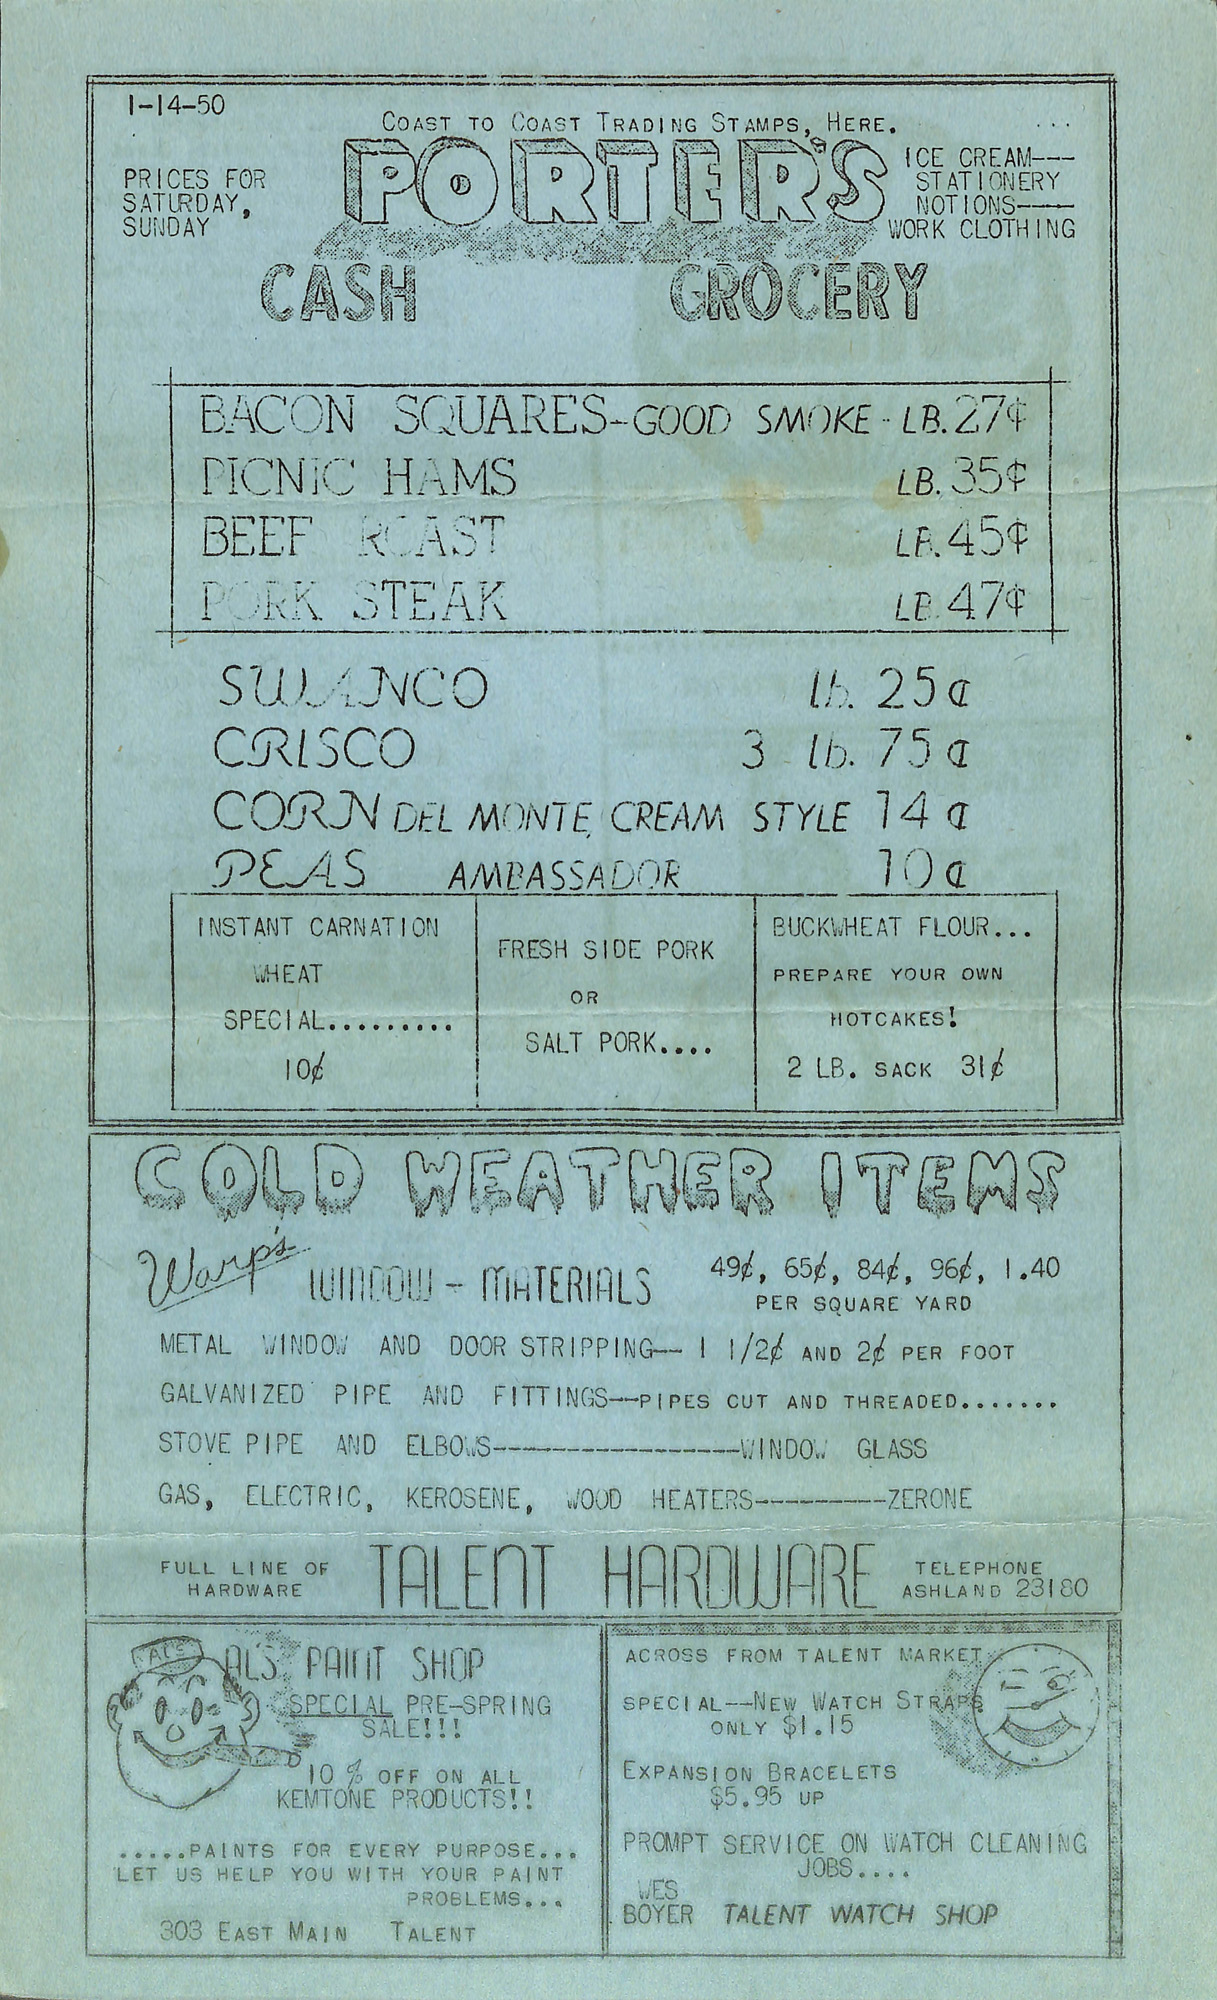 1-14-50
COAST TO COAST TRADING STAMPS, HERE.
PRICES FOR
SATURDAY,
SUNDAY
PORTER'S
ICE CREAM---
STATIONERY
NOTIONS----
WORK CLOTHING
CASH GROCERY
BACON SQUARES-GOOD SMOKE - LB. 27¢
PICNIC HAMS LB. 35¢
BEEF ROAST LB. 45¢
PORK STEAK LB. 47¢
SWANCO lb. 25¢
CRISCO 3 lb. 75¢
CORN DEL MONTE CREAM STYLE 14¢
PEAS AMBASSADOR 10¢
INSTANT CARNATION
WHEAT
SPECIAL.........
10¢
FRESH SIDE PORK
OR
SALT PORK....
BUCKWHEAT FLOUR...
PREPARE YOUR OWN
HOTCAKES!
2 LB. SACK 31¢
COLD WEATHER ITEMS
Warp's WINDOW - MATERIALS 49¢, 65¢, 84¢, 96¢, 1.40
PER SQUARE YARD
METAL WINDOW AND DOOR STRIPPING-- 1 1/2¢ AND 2¢ PER FOOT
GALVANIZED PIPE AND FITTINGS--PIPES CUT AND THREADED.......
STOVE PIPE AND ELBOWS-----------------WINDOW GLASS
GAS, ELECTRIC, KEROSENE, WOOD HEATERS---------ZERONE
FULL LINE OF
HARDWARE
TALENT HARDWARE
TELEPHONE
ASHLAND 23180
AL'S
AL'S PAINT SHOP
SPECIAL PRE-SPRING
SALE!!!
10 % OFF ON ALL
KEMTONE PRODUCTS!!
.....PAINTS FOR EVERY PURPOSE...
LET US HELP YOU WITH YOUR PAINT
PROBLEMS...
303 EAST MAIN TALENT
ACROSS FROM TALENT MARKET
SPECIAL--NEW WATCH STRAPS
ONLY $1.15
EXPANSION BRACELETS
$5.95 UP
PROMPT SERVICE ON WATCH CLEANING
JOBS....
WES
BOYER TALENT WATCH SHOP